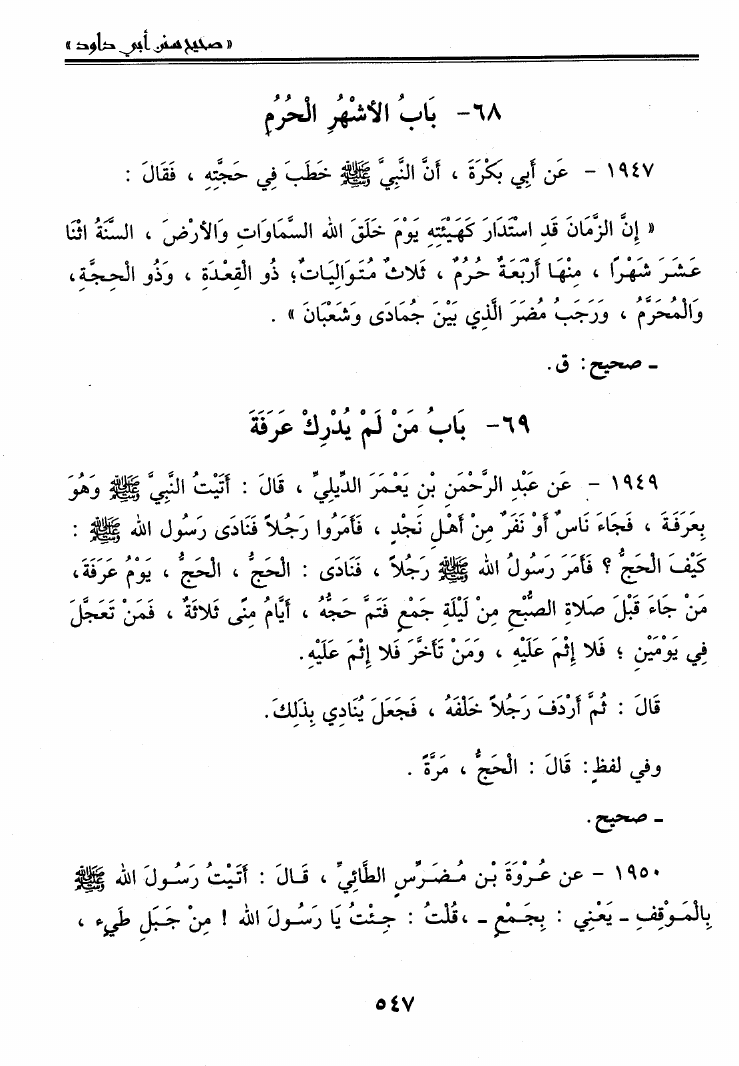 « صحيح سنن أبي داود »
٦٨- بَابُ الأشْهُرِ الْحُرُمِ
١٩٤٧ - عَن أَبِي بَكْرَةَ ، أَنَّ النَّبِيَّ ﷺ خَطَبَ فِي حَجَّتِهِ ، فَقَالَ :
« إِنَّ الزَّمَانَ قَدِ اسْتَدَارَ كَهَيْئَتِهِ يَوْمَ خَلَقَ الله السَّمَاوَاتِ وَالأَرْضَ ، السَّنَةُ اثْنَا
عَشَرَ شَهْرًا ، مِنْهَا أَرْبَعَةٌ حُرُمٌ ، ثَلاثٌ مُتَوَالِيَاتٌ؛ ذُو الْقِعْدَةِ ، وَذُو الْحِجَّةِ،
وَالْمُحَرَّمُ ، وَرَجَبُ مُضَرَ الَّذِي بَيْنَ جُمَادَى وَشَعْبَانَ » .
ـ صحيح: ق.
٦٩- بَابُ مَنْ لَمْ يُدْرِكْ عَرَفَةَ
١٩٤٩ - عَن عَبْدِ الرَّحْمَنِ بْنِ يَعْمَرَ الدِّيلِيِّ ، قَالَ : أَتَيْتُ النَّبِيَّ ﷺ وَهُوَ
بِعَرَفَةَ ، فَجَاءَ نَاسٌ أَوْ نَفَرٌ مِنْ أَهْلِ نَجْدٍ ، فَأَمَرُوا رَجُلاً فَنَادَى رَسُولَ الله ﷺ :
كَيْفَ الْحَجُّ ؟ فَأَمَرَ رَسُولُ الله ﷺ رَجُلاً ، فَنَادَى : الْحَجُّ ، الْحَجُّ ، يَوْمُ عَرَفَةَ،
مَنْ جَاءَ قَبْلَ صَلاةِ الصُّبْحِ مِنْ لَيْلَةِ جَمْعٍ فَتَمَّ حَجُّهُ ، أَيَّامُ مِنًى ثَلاثَةٌ ، فَمَنْ تَعَجَّلَ
فِي يَوْمَيْنِ ؛ فَلا إِثْمَ عَلَيْهِ ، وَمَنْ تَأَخَّرَ فَلا إِثْمَ عَلَيْهِ.
قَالَ : ثُمَّ أَرْدَفَ رَجُلاً خَلْفَهُ ، فَجَعَلَ يُنَادِي بِذَلِكَ.
وفي لفظٍ: قَالَ : الْحَجُّ ، مَرَّةً .
ـ صحيح.
١٩٥٠ - عن عُرْوَةَ بْنِ مُضَرِّسٍ الطَّائِيِّ ، قَالَ : أَتَيْتُ رَسُولَ الله ﷺ
بِالْمَوْقِفِ ـ يَعْنِي : بِجَمْعٍ ـ ،قُلْتُ : جِئْتُ يَا رَسُولَ الله ! مِنْ جَبَلِ طَيِّءٍ ،
٥٤٧